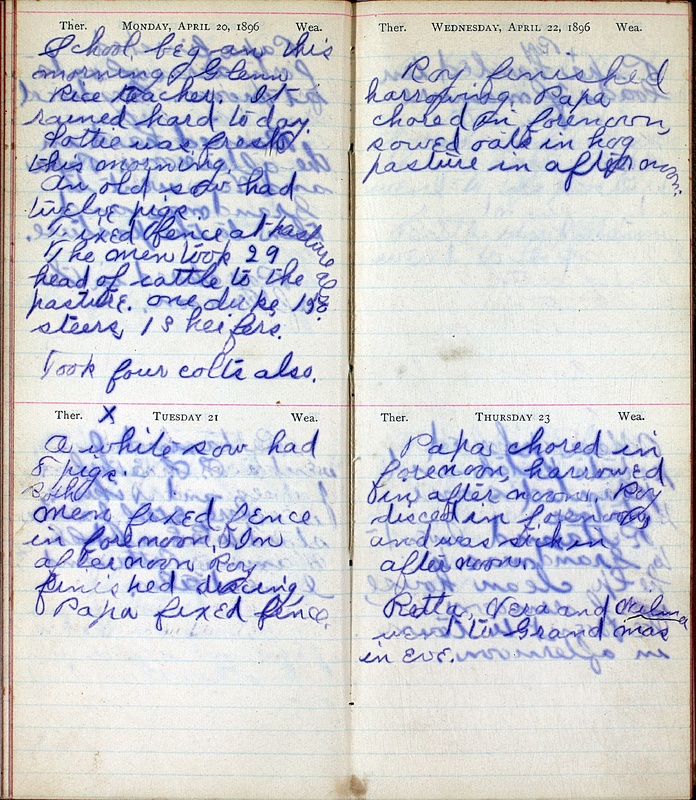 Ther. MONDAY, APRIL 20, 1896 Wea.
School began this
morning. Glenn
Rice teacher. It
rained hard to day.
Lottie was fresh
this morning.
An old sow had
twelve pigs.
Fixed fence at pasture also.
The men took 29
head of cattle to the
pasture. one duke, 15
steers, 13 heifers.
Took four colts also.
Ther. X TUESDAY 21 Wea.
A white sow had
8 pigs.
Both
men fixed fence
in forenoon, In
afternoon Roy
finished discing
Papa fixed fence.
Ther. WEDNESDAY, APRIL 22, 1896 Wea.
Roy finished
harrowing. Papa
chored in forenoon,
sowed oats in hog
pasture in after noon.
Ther. THURSDAY 23 Wea.
Papa chored in
forenoon, harrowed
in after noon. Roy
disced in forenoon,
and was sick in
afternoon
Retta, Vera and Wilma
went to Grand mas
in Eve.